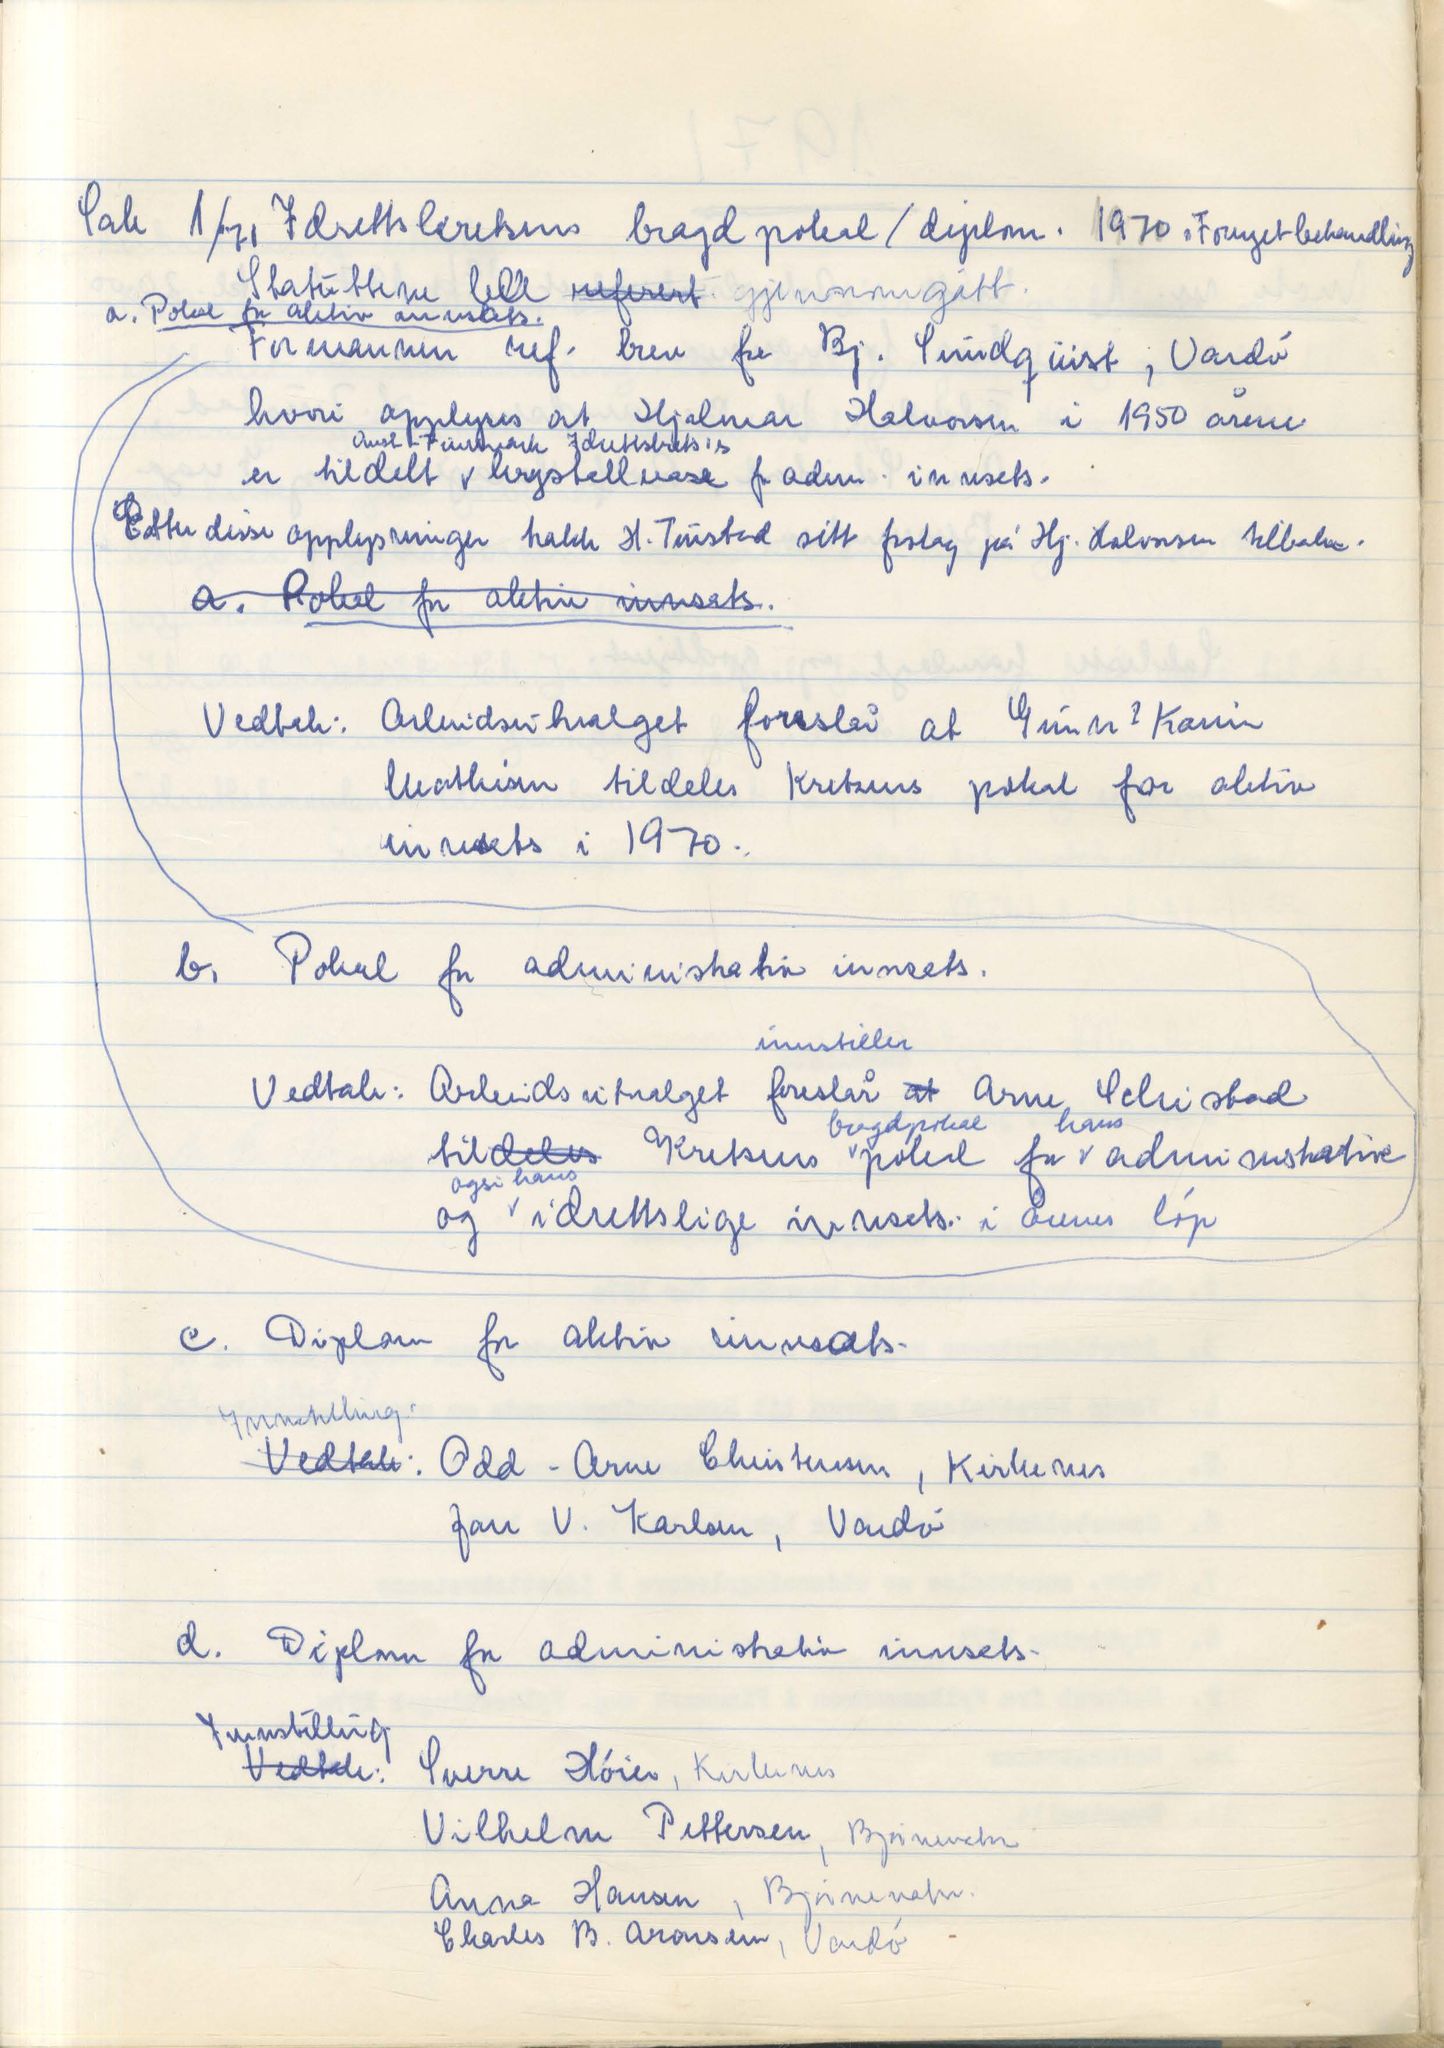 Sak 1/71 Idrettskretsens bragdpokal/diplom. 1970. Fornyet behandling
Statuttene ble referert gjennomgått.
a. Pokal for aktiv innsats.
Formannen ref. brev fra Bj. Sundquist, Vardö
hvori opplyses at Hjalmar Halvorsen i 1950 årene
Aust-Finnmark Idrettskrets's
er tildelt krystallvase for adm. innsats.
Etter disse opplysninger trakk H. sitt forslag på Hj. Halvorsen tilbake.
a. Pokal for aktiv innsats.
Vedtak: Arbeidsutvalget foreslår at Gunn Karin
Mathisen tildeles Kretsens pokal for aktiv
innsats i 1970.
b. Pokal for administrativ innsats.
innstiller
Vedtak: Arbeidsutvalget foreslår at Arne Scheistad
bragdpokal hans
tildeles Kretsens pokal for administrative
også hans
og idrettslige innsats i årenes löp
c. Diplom for aktiv innsats.
Innstilling:
Vedtak: Odd-Arne Christensen, Kirkenes
Jan V. Karlsen, Vardö
d. Diplom for administrativ innsats.
Innstilling
Vedtak: Sverre Höier, Kirkenes
Vilhelm Pettersen, Björnevatn
Anna Hansen, Björnevatn.
Charles B. Aronsen, Vardö